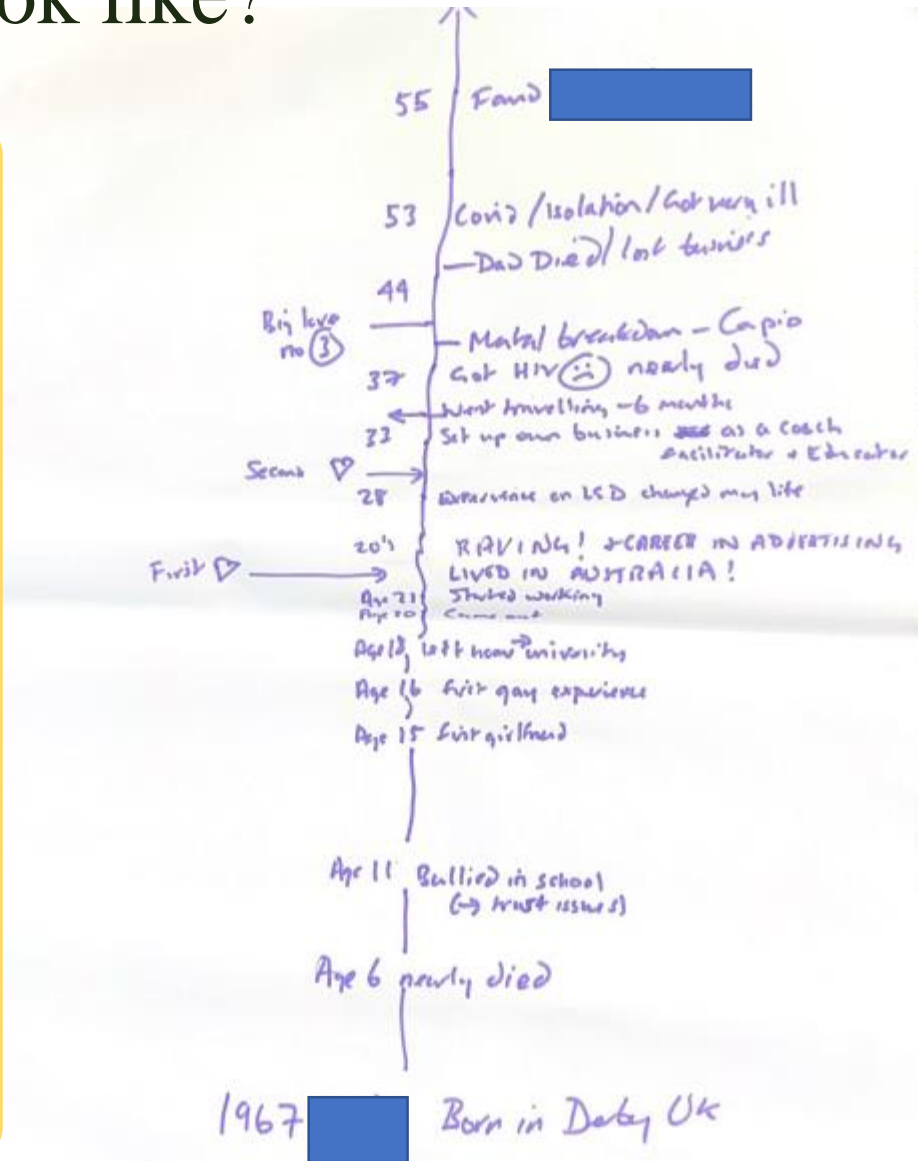 ok like?
55 Found
53 Covid / Isolation / Got very ill
Dad Died / lost business
44
Big love
no 3
Mental breakdown - Capio
37 Got HIV nearly died
Went travelling - 6 months
33 Set up own business as a coach
facilitator + Educator
Second
28 Experience on LSD changed my life
20's RAVING! + CAREER IN ADVERTISING
First
LIVED IN AUSTRALIA!
Age 21 Started working
Age 20 Came out
Age 18, Left home → university
Age 16 first gay experience
Age 15 first girlfriend
Age 11 Bullied in school
(→ trust issues)
Age 6 nearly died
1967 Born in Derby UK